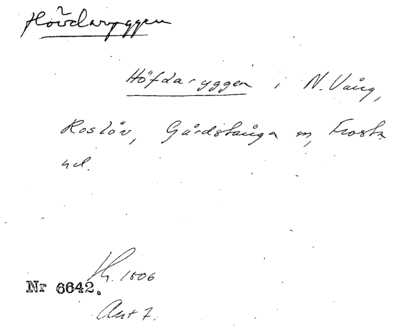 Hövdaryggen
Höfdaryggen i N. Vång,
Roslöv, Gårdstånga sn, Frosta
hd.
Nr 6642.
1806
Akt 7.